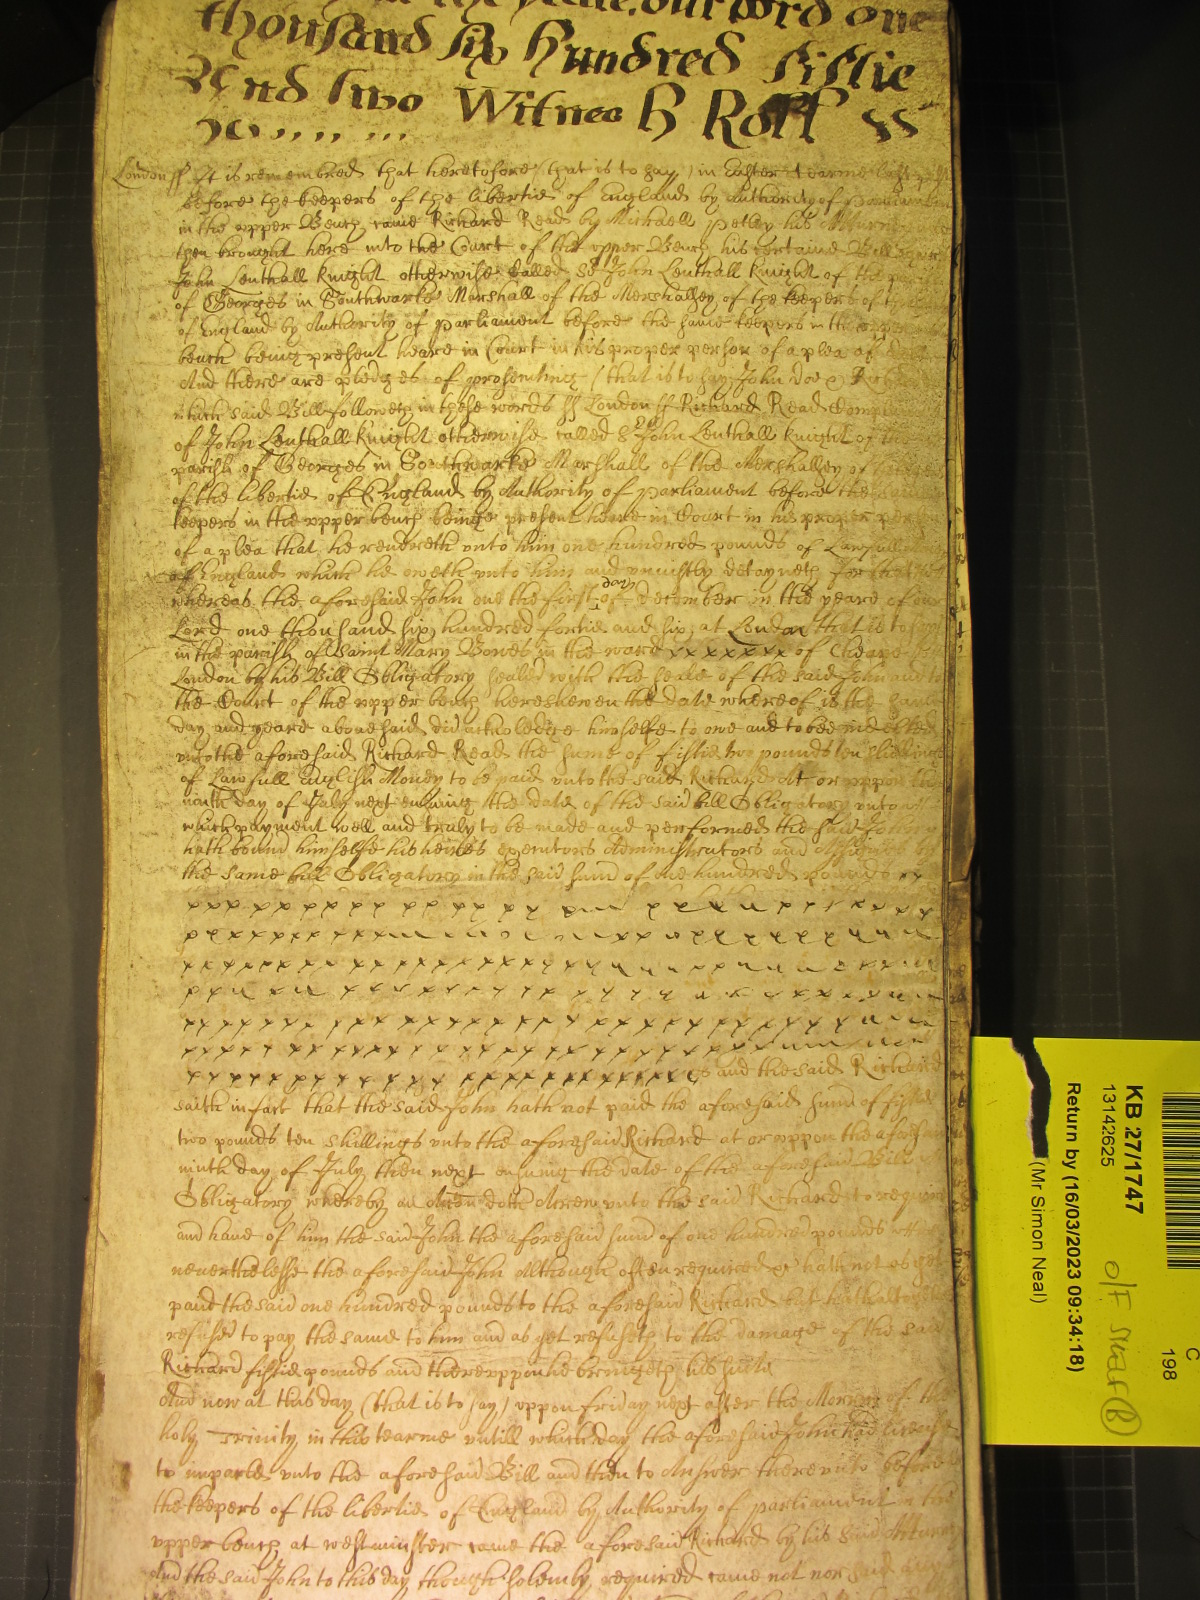 in the yeare our Lord one
thousand six Hundred fiftie
And two Witnes H Roll ss
London ss It is remembred that heretofore (that is to say) in Easter tearme last past
before the keepers of the libertie of England by Authority of Parliament
in the upper Bench came Richard Read by Michaell Petley his Atturney
then brought here into the Court of the upper Bench his certaine Bill
John Lenthall Knight otherwise Called Sr John Lenthall Knight of the
of Georges in Southwarke Marshall of the Marshallsey of the keepers of the
of England by Authority of Parliament before the same keepers in the upper
bench being present heare in Court in his proper person of a plea of
And there are pledges of prosecuting (that is to say) John Doe &
which said Bill followeth in these words ss London ss Richard Read
of John Lenthall Knight otherwise called Sr John Lenthall Knight of the
parish of Georges in Southwarke Marshall of the Marshallsey
of the libertie of England by Authority of Parliament before the
keepers in the upper bench beinge present heare in Court in his proper
of a plea that he rendreth unto him one hundred pounds of Lawfull
of England which he oweth unto him and uniustly detayneth For that
whereas the aforesaid John one the first day of December in the yeare of our
Lord one thousand six hundred fortie and six at London that is to say
in the parish of Saint Mary Bowes in the ward xxxxxxx of Cheape
London by his Bill Obligatory sealed with the seale of the said John and to
the Court of the upper bench here shewen the date whereof is the same
day and yeare abovesaid did acknoledge himselfe to owe and to bee indebted
unto the aforesaid Richard Read the summe of fiftie two pounds ten shillings
of lawfull English Money to be paid unto the said Richard Att or uppon the
ninth day of July next ensuing the date of the said bill Obligatory unto
which payment well and truly to be made and performed the said John
hath bound himselfe his heires executors Administrators and Assignes by
the same bill Obligatory in the said sum of one hundred pounds
and the said Richard
saith in fact that the said John hath not paid the aforesaid sum of fiftie
two pounds ten shillings unto the aforesaid Richard at or uppon the aforesaid
ninth day of July then next ensuing the date of the aforesaid Bill
Obligatory whereby an Action doth Acrew unto the said Richard to require
and have of him the said John the aforesaid sum of one hundred pounds
neverthelesse the aforesaid John Although often required &c hath not as yet
paid the said one hundred pounds to the aforesaid Richard but hath altogether
refused to pay the same to him and as yet refuseth to the damage of the said
Richard fiftie pounds and thereuppon he bringeth his suite
And now at this day (that is to say) uppon Friday next after the Morrow of the
holy Trinity in this tearme untill which day the aforesaid John had licence
to imparle unto the aforesaid Bill and then to Answer thereunto before
the keepers of the libertie of England by Authority of Parliament in the
upper bench at Westminster came the aforesaid Richard by his said Atturney
And the said John to this day though solemly required came not nor said
KB 27/1747
13142625
Return by (16/03/2023 09:34:18)
(Mr Simon Neal)
O/F
C
198